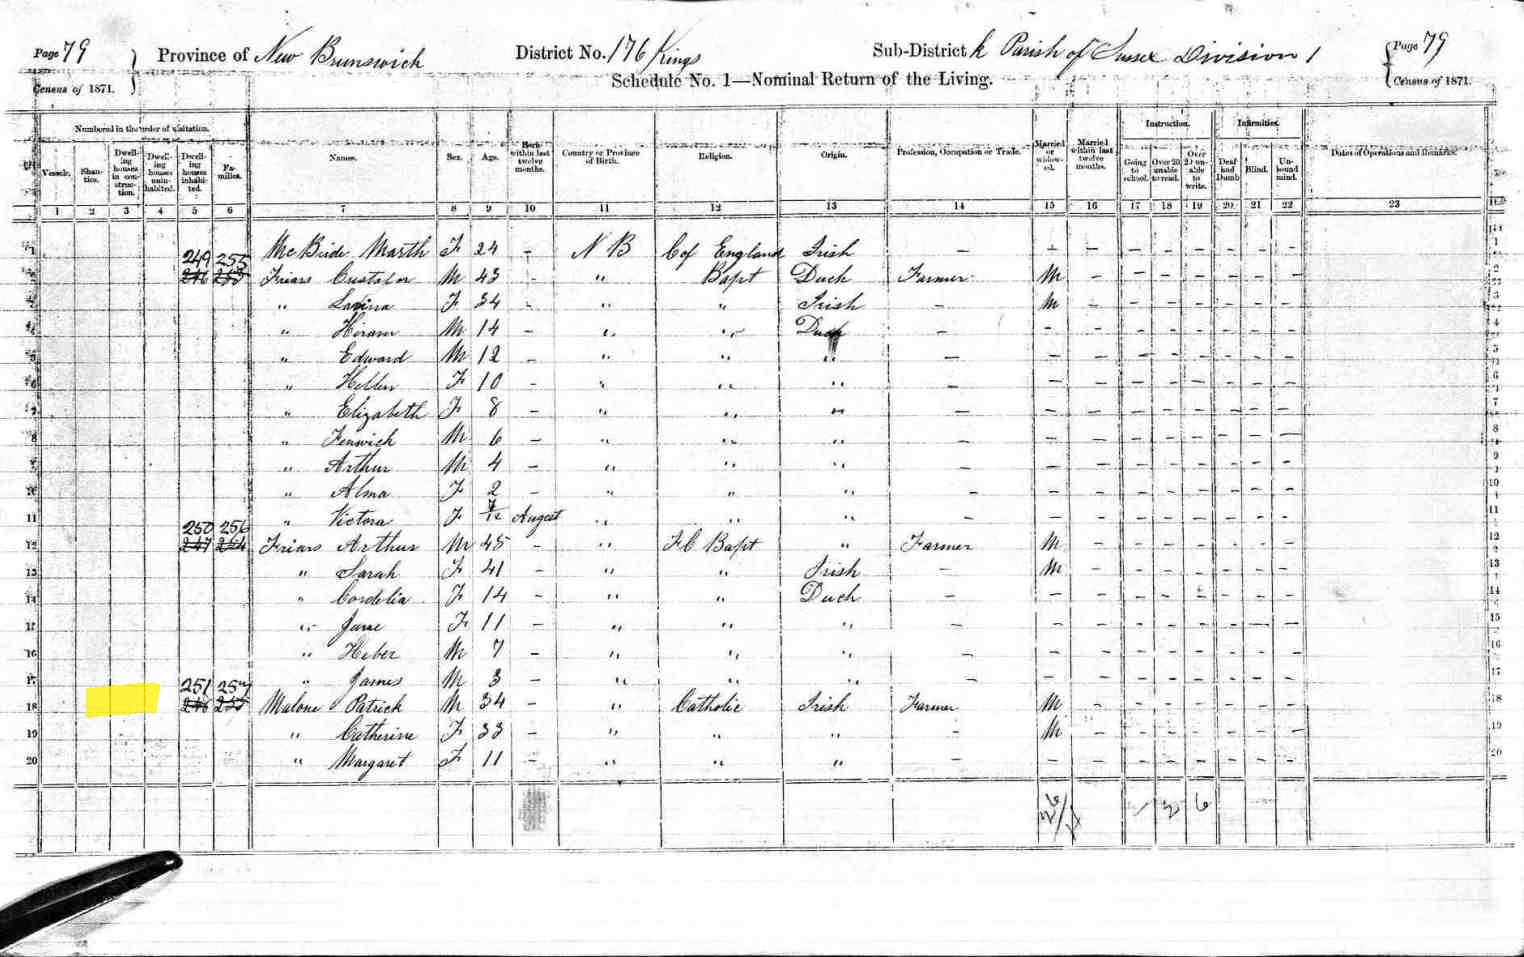 Page 79 Province of New Brunswick District No. 176 Kings Sub-District k Parish of Sussex Division 1 Page 79
Census of 1871. Schedule No. 1—Nominal Return of the Living. Census of 1871.
Numbered in the order of visitation. Names. Sex. Age. Born within last twelve months. Country or Province of Birth. Religion. Origin. Profession, Occupation or Trade. Married or widowed. Married within last twelve months. Instruction. Infirmities. Dates of Operations and Remarks.
Vessels. Shanties. Dwelling houses in construction. Dwelling houses uninhabited. Dwelling houses inhabited. Families. Going to school. Over 20 unable to read. Over 20 unable to write. Deaf and Dumb Blind. Unsound mind.
1 2 3 4 5 6 7 8 9 10 11 12 13 14 15 16 17 18 19 20 21 22 23
1 McBride Marth F 24 - N B C of England Irish - - - - - - - - - 1
249 255
2 246 253 Friars Gustafor M 43 - " Bapt Duch Farmer M - - - - - - - 2
3 " Lavina F 34 - " " Irish - M - - - - - - - 3
4 " Hiram M 14 - " " Duch - - - - - - - - - 4
5 " Edward M 12 - " " " - - - - - - - - - 5
6 " Hellen F 10 - " " " - - - - - - - - - 6
7 " Elizabeth F 8 - " " " - - - - - - - - - 7
8 " Fenwick M 6 - " " " - - - - - - - - - 8
9 " Arthur M 4 - " " " - - - - - - - - - 9
10 " Alma F 2 - " " " - - - - - - - - - 10
11 " Victora F /12 August " " " - - - - - - - - - 11
250 256
12 247 254 Friars Arthur M 45 - " FC Bapt " Farmer M - - - - - - - 12
13 " Sarah F 41 - " " Irish - M - - - - - - - 13
14 " Cordelia F 14 - " " Duch - - - - - - - - - 14
15 " Jane F 11 - " " " - - - - - - - - - 15
16 " Heber M 7 - " " " - - - - - - - - - 16
17 " James M 3 - " " " - - - - - - - - - 17
251 257
18 248 255 Malone Patrick M 34 - " Catholic Irish Farmer M - - - - - - - 18
19 " Catherine F 33 - " " " - M - - - - - - - 19
20 " Margaret F 11 - " " " - - - - - - - - - 20